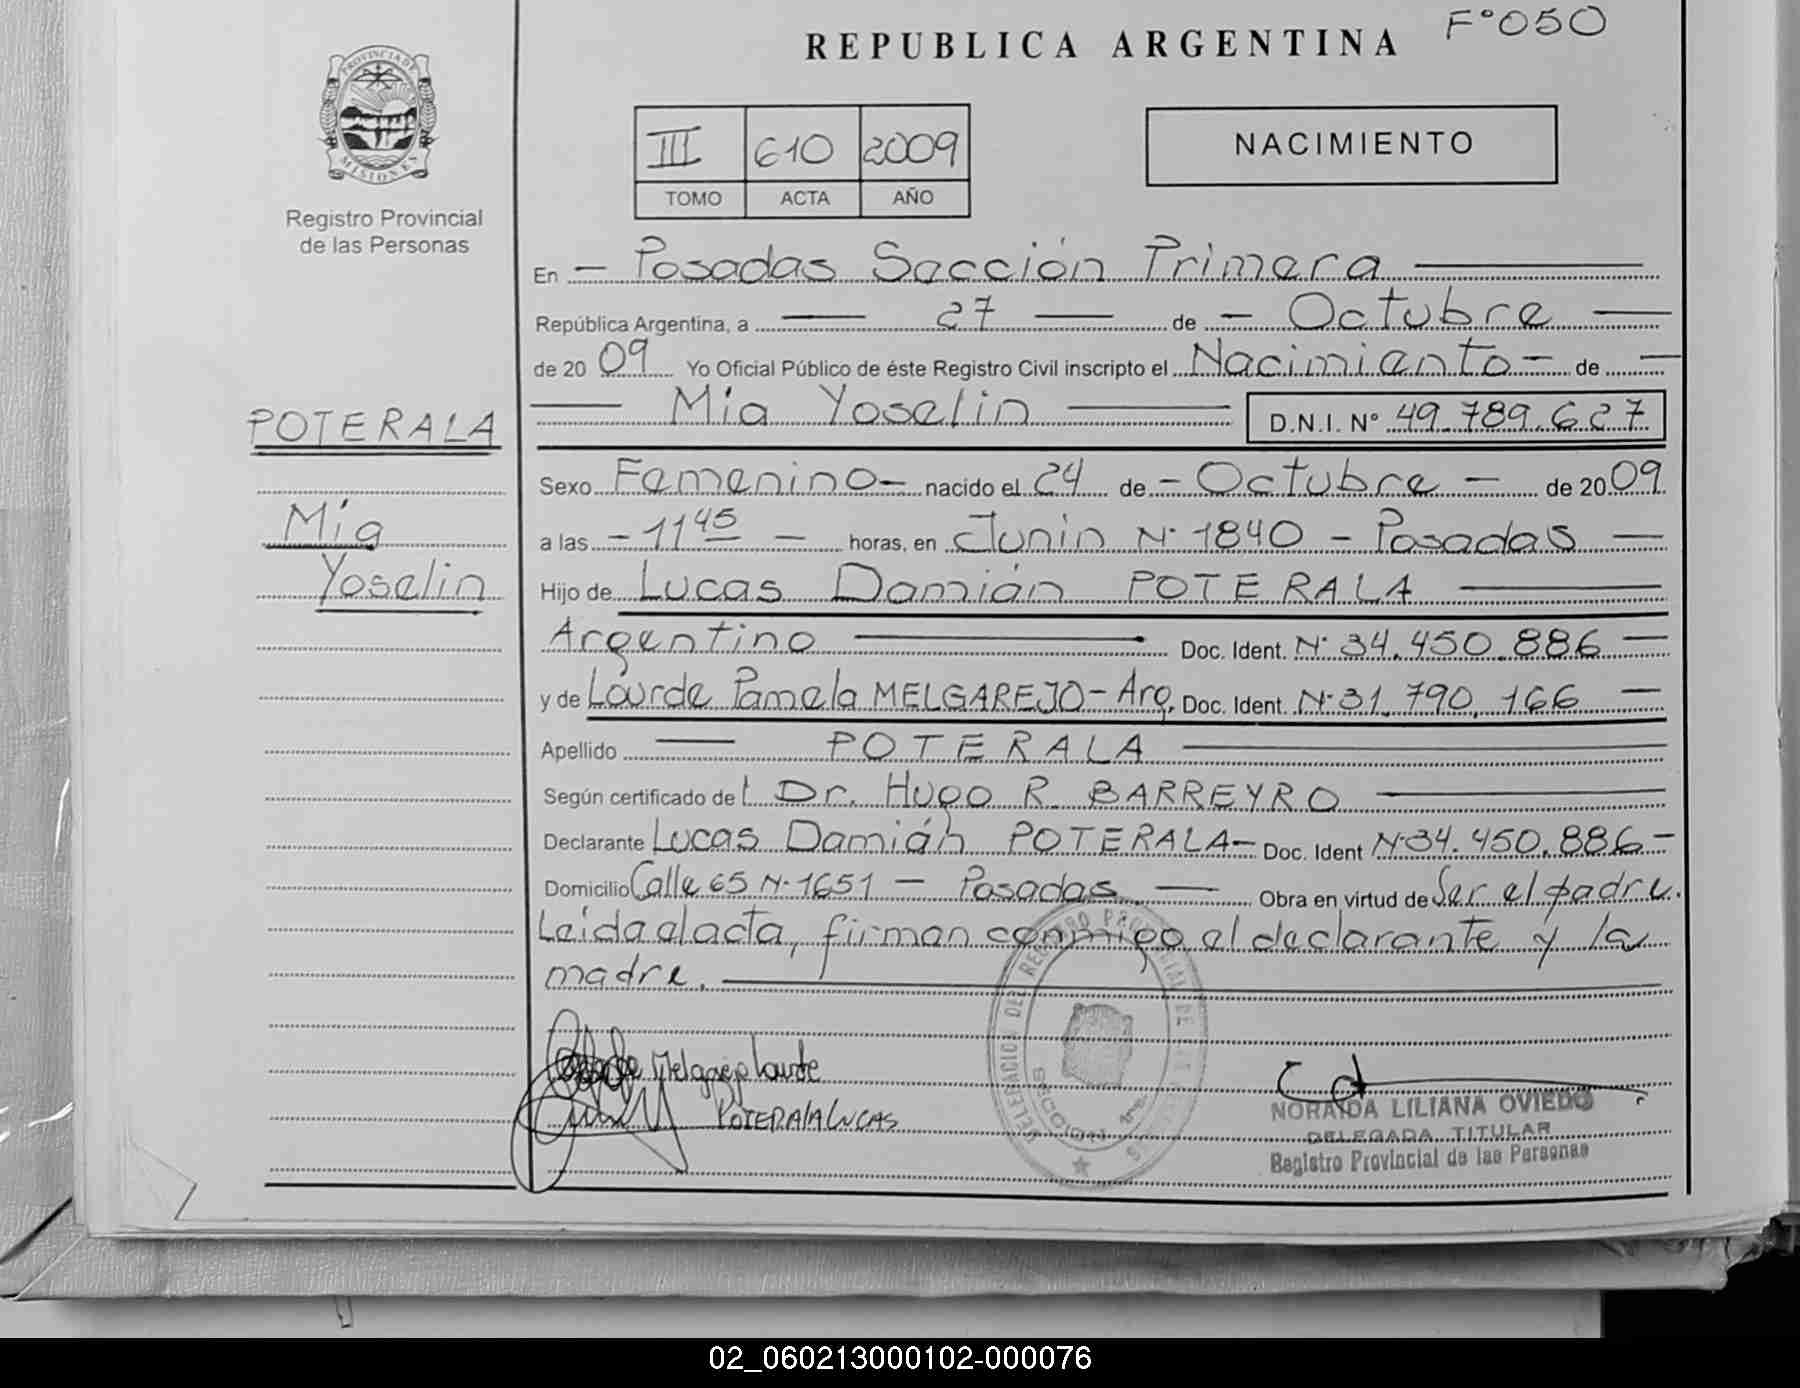 REPUBLICA ARGENTINA
F° 050
PROVINCIA DE
MISIONES
Registro Provincial
de las Personas
III 610 2009
TOMO ACTA AÑO
NACIMIENTO
En — Posadas Sección Primera —
República Argentina, a — 27 — de — Octubre —
de 2009 Yo Oficial Público de éste Registro Civil inscripto el Nacimiento — de —
— Mía Yoselin — D.N.I. N° 49.789.627
POTERALA
Mía
Yoselin
Sexo Femenino — nacido el 24 de — Octubre — de 2009
a las — 11 45 — horas, en Junin N° 1840 — Posadas —
Hijo de Lucas Damián POTERALA —
Argentino — Doc. Ident. N° 34.450.886 —
y de Lourde Pamela MELGAREJO — Arg. Doc. Ident. N° 31.790.166 —
Apellido — POTERALA —
Según certificado del Dr. Hugo R. BARREYRO —
Declarante Lucas Damián POTERALA — Doc. Ident N° 34.450.886 —
Domicilio Calle 65 N° 1651 — Posadas — Obra en virtud de Ser el padre.
Leida el acta, firman conmigo el declarante y la
madre. —
Melgarejo Lourde
POTERALA LUCAS
NORAIDA LILIANA OVIEDO
DELEGADA TITULAR
Registro Provincial de las Personas
02_060213000102-000076